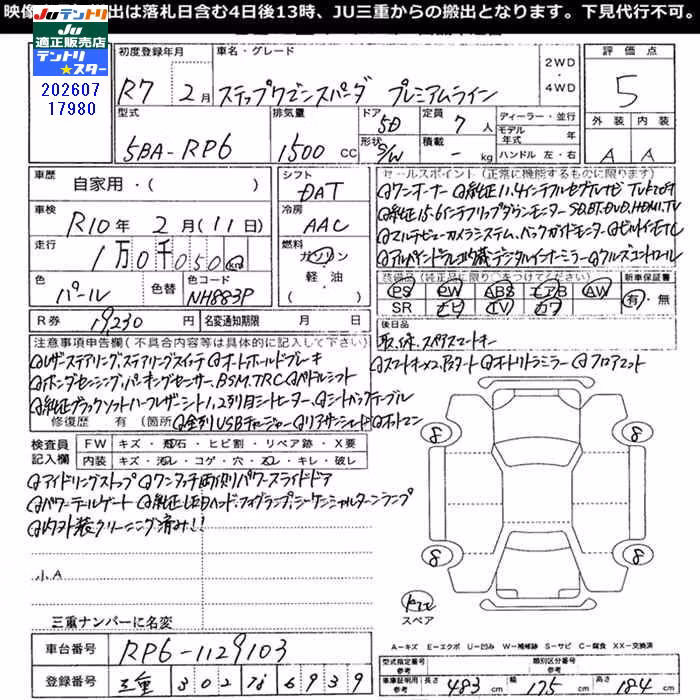 映像 出は落札日含む4日後13時、JU三重からの搬出となります。下見代行不可。
JUテントリ
JU
適正販売店
テントリ★スター
202607
17980
初度登録年月
R7 2月
車名・グレード
ステップワゴンスパーダ プレミアムライン
2WD
・
4WD
評価点
5
型式
5BA-RP6
排気量
1500 CC
ドア
5D
形状
S/W
定員
7人
積載
- kg
ディーラー・並行
モデル年式 年
ハンドル 左・右
外装 内装
A A
車歴
自家用・( )
車検
R10年2月(11日)
走行
1万0千050km
色
パール
色替
色コード
NH883P
シフト
DAT
冷房
AAC
燃料
ガソリン
・
軽・油
( )
R券 19230円
名変通知期限 月 日
セールスポイント(正常に機能するものに限ります)
◎ワンオーナー ◎純正11.4インチフルセグTVナビ
◎純正15.6インチリップダウンモニター SD,BT,DVD,HDMI,TV
◎マルチビューカメラシステム、バックガイドモニター ◎ビルトインETC
◎アルパインドラレコ内蔵デジタルインナーミラー ◎クルーズコントロール
装備品(純正品に限り○をつけてください)
PS PW ABS エアB AW
SR ナビ TV カワ
新車保証書
有・無
後日品
取、保、スペアスマートキー
注意事項申告欄(不具合内容等は具体的に記入して下さい)
◎レザーステアリング、ステアリングスイッチ ◎オートホールドブレーキ
◎ホンダセンシング、パーキングセンサー、BSM,TRC ◎パドルシフト
◎純正ブラックソフトハーフレザーシート1,2列目シートヒーター ◎シートバックテーブル
◎スマートキー×2,Pスタート ◎オートリトラミラー ◎フロアマット
修復歴 有 (箇所 ◎全列USBチャージャー ◎リアサンシェード ◎オットマン
検査員記入欄
FW キズ・飛石・ヒビ割・リペア跡・X要
内装 キズ・汚レ・コゲ・穴・スレ・キレ・破レ
◎アイドリングストップ ◎ワンタッチ両側パワースライドドア
◎パワーテールゲート ◎純正LEDヘッド、フォグランプ、シーケンシャルターンランプ
◎内外装クリーニング済み!!
小A
8 8
8 8
スペア
三重ナンバーに名変
車台番号 RP6-1129103
登録番号 三重 302 な 6939
A－キズ E－エクボ U－凹み W－補修跡 S－サビ C－腐食 XX－交換済
型式指定番号 参考
類別区分番号 参考
車庫証明用 参考
長さ 483cm 幅 175cm 高さ 184cm